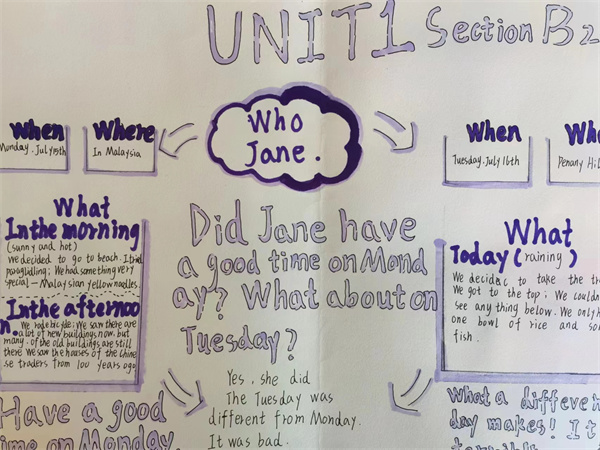 UNIT1 Section B 2
Who
Jane.
When
Monday. July 15th
Where
In Malaysia
When
Tuesday. July 16th
Penany Hil
What
In the morning
(sunny and hot)
we decided to go to beach. I tried
paragliding; We had something very
special — Malaysian yellow noodles.
In the afternoo
n. We rode bicycle; We saw there are
a lot of new buildings now. but
many of the old buildings are still
there We saw the houses of the Chine
se traders from 100 years ago
Did Jane have
a good time on Mond
ay? What about on
Tuesday?
Yes. she did
The Tuesday was
different from Monday.
It was bad.
What
Today (raining)
We decided to take the tr
We got to the top; We couldn
see anything below. We only h
one bowl of rice and so
fish.
Have a good
time on Monday.
What a differen
day makes! It